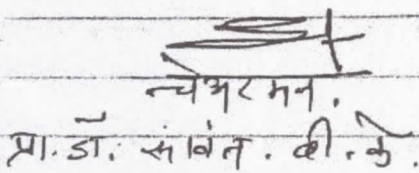 चेअरमन.
प्रा. डॉ. सावंत. बी. के.